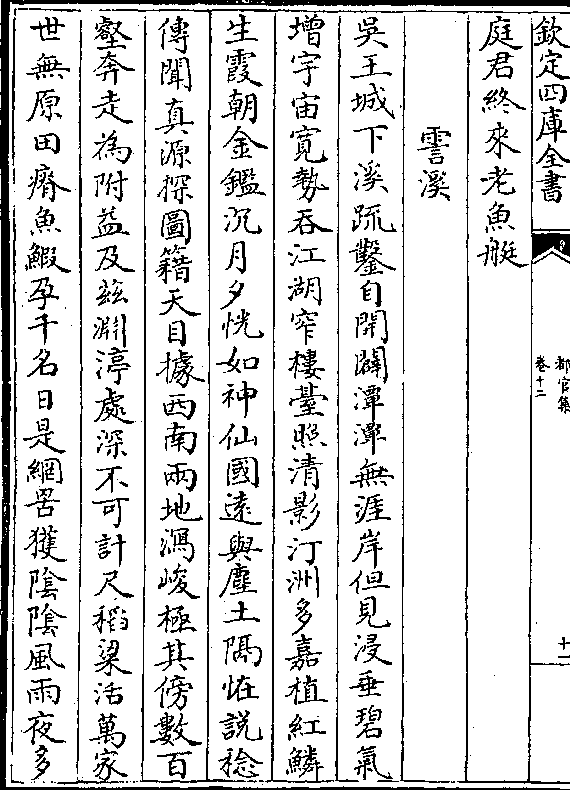 欽定四庫全書
都官集
卷十二
十一
庭君終來老魚艇
霅溪
吳王城下溪疏鑿自開闢潭潭無涯岸但見浸垂碧氣
增宇宙寛勢吞江湖窄樓臺照清影汀洲多嘉植紅鱗
生霞朝金鑑沉月夕恍如神仙國遠與塵土隔恠說稔
傳聞真源探圖籍天目據西南兩地瀉峻極其傍數百
壑奔走為附益及兹渊渟處深不可計尺稻粱活萬家
世無原田瘠魚鰕孕千名日是網罟獲陰陰風雨夜多